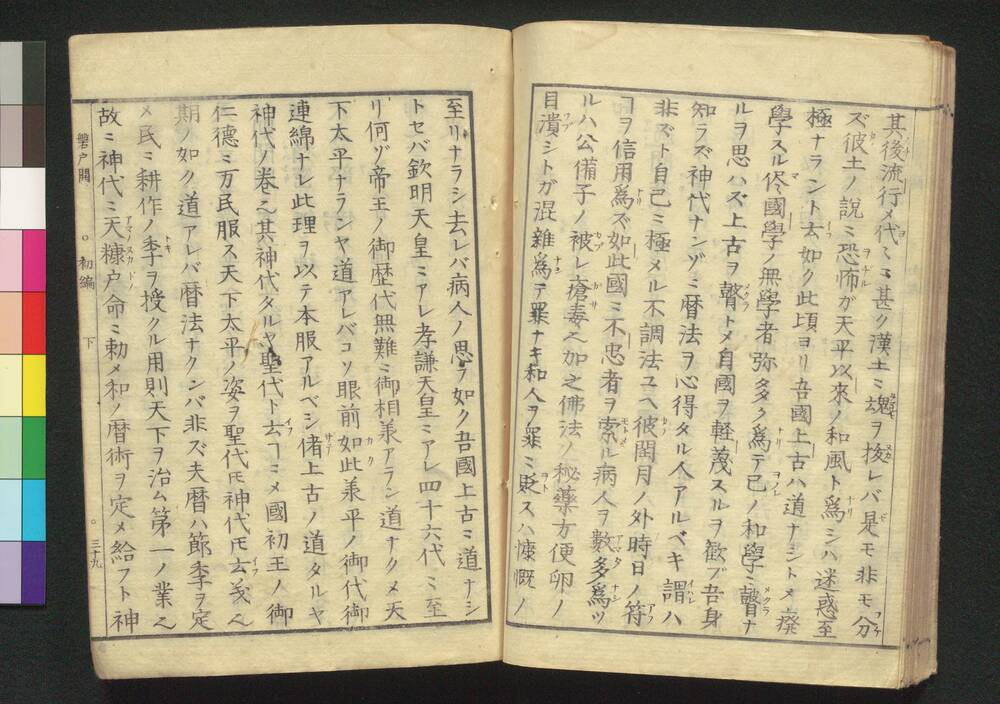 其後流行メ代〻ミ甚ク漢土ミ魂ヲ拔レバ是モ非モ分
ズ彼土ノ說ミ恐怖ガ天平以來ノ和風ト爲ミハ迷惑至
極ナラント去如ク此頃ヨリ吾國上古ハ道ナシトメ癈
學スル佟國學ノ無學者弥多ク爲テ己ノ和學ミ瞽ナ
ルヲ思ハズ上古ヲ瞽トメ自國ヲ軽蔑スルヲ歎ブ吾身
知ラズ神代ナンゾミ暦法ヲ心得タル人アルベキ謂ハ
非ズト自己ミ極メル不調法ユヘ彼閏月ノ外時日ノ符
ヿヲ信用爲ズ如此國ミ不忠者ヲ索ル病人ヲ數多爲ツ
ルハ公備子ノ被レ瘡毒之加之佛法ノ秘藥方便卵ノ
目潰シトガ混雜爲テ罪ナキ和人ヲ罪ミ貶スハ慷慨ノ
至リナラシ去レバ病人ノ思ヲ如ク吾國上古ミ道ナシ
トセバ欽明天皇ミアレ孝謙天皇ミアレ四十六代ミ至
リ何ゾ帝王ノ御歴代無難ミ御相羕アラン道ナクメ天
下太平ナランヤ道アレバコソ眼前如此羕平ノ御代御
連綿ナレ此理ヲ以テ本服アルベシ偖上古ノ道タルヤ
神代ノ卷之其神代タルヤ聖代ト去ヿミメ國初王ノ御
仁德ミ万民服ス天下太平ノ姿ヲ聖代𪜈神代𪜈玄義之
期ノ如ク道アレバ暦法ナクンバ非ズ夫暦ハ節季ヲ定
メ民ミ耕作ノ季ヲ授クル用則天下ヲ治ム第一ノ業之
故ミ神代ミ天糠戸命ミ勅メ和ノ暦術ヲ定メ給フト神
磐戸開 ○ 初編 下 ○ 三十九